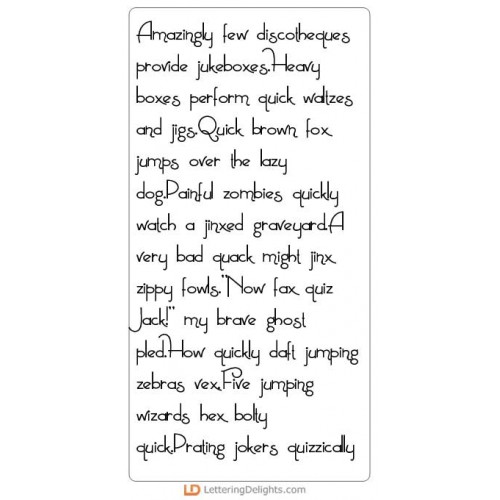 Amazingly few discotheques
provide jukeboxes.Heavy
boxes perform quick waltzes
and jigs.Quick brown fox
jumps over the lazy
dog.Painful zombies quickly
watch a jinxed graveyard.A
very bad quack might jinx
zippy fowls."Now fax quiz
Jack!" my brave ghost
pled.How quickly daft jumping
zebras vex.Five jumping
wizards hex bolty
quick.Prating jokers quizzically
LD LetteringDelights.com